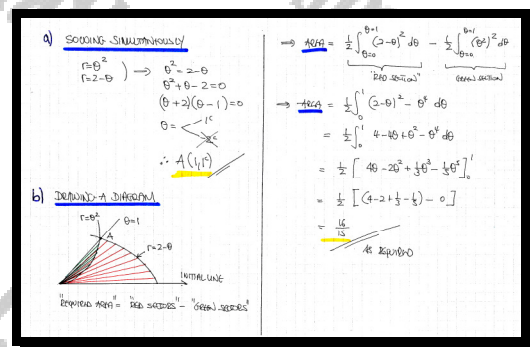 a) SOLVING SIMULTANEOUSLY
r=θ²
r=2-θ
} ⇒ θ² = 2-θ
θ²+θ-2=0
(θ+2)(θ-1)=0
θ = < 1ᶜ
-2ᶜ
∴ A(1,1ᶜ)
b) DRAWING A DIAGRAM
r=θ²
θ=1
A
r=2-θ
INITIAL LINE
"REQUIRED AREA" = "RED SECTORS" - "GREEN SECTORS"
⇒ AREA = ½∫_{θ=0}^{θ=1} (2-θ)² dθ - ½∫_{θ=0}^{θ=1} (θ²)² dθ
"RED SECTION" GREEN SECTION
⇒ AREA = ½∫₀¹ (2-θ)² - θ⁴ dθ
= ½∫₀¹ 4-4θ+θ²-θ⁴ dθ
= ½[4θ-2θ²+⅓θ³-⅕θ⁵]₀¹
= ½[(4-2+⅓-⅕)-0]
= 16/15
AS REQUIRED